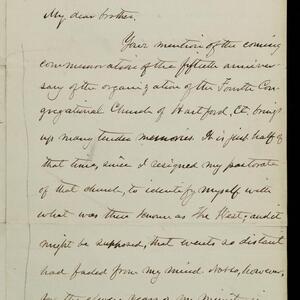 My dear brother,
Your mention of the coming
commemoration of the fiftieth anniver-
sary of the organization of the Fourth Con-
gregational Church of Hartford, Ct, brings
up many tender memories. It is just half of
that time, since I resigned my pastorate
of that church, to identify myself with
what was then known as The West; and it
might be supposed, that events so distant
had faded from my mind. Not so, however,
for the eleven years of my ministry in